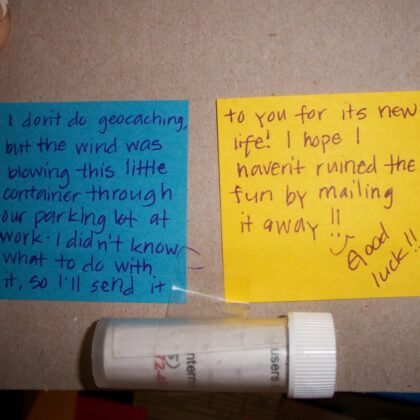 I don't do geocaching,
but the wind was
blowing this little
container through
our parking lot at
work. I didn't know
what to do with
it, so I'll send it
to you for its new
life! I hope I
haven't ruined the
fun by mailing
it away!!
Good
luck!!
users
intern
5)
72.4